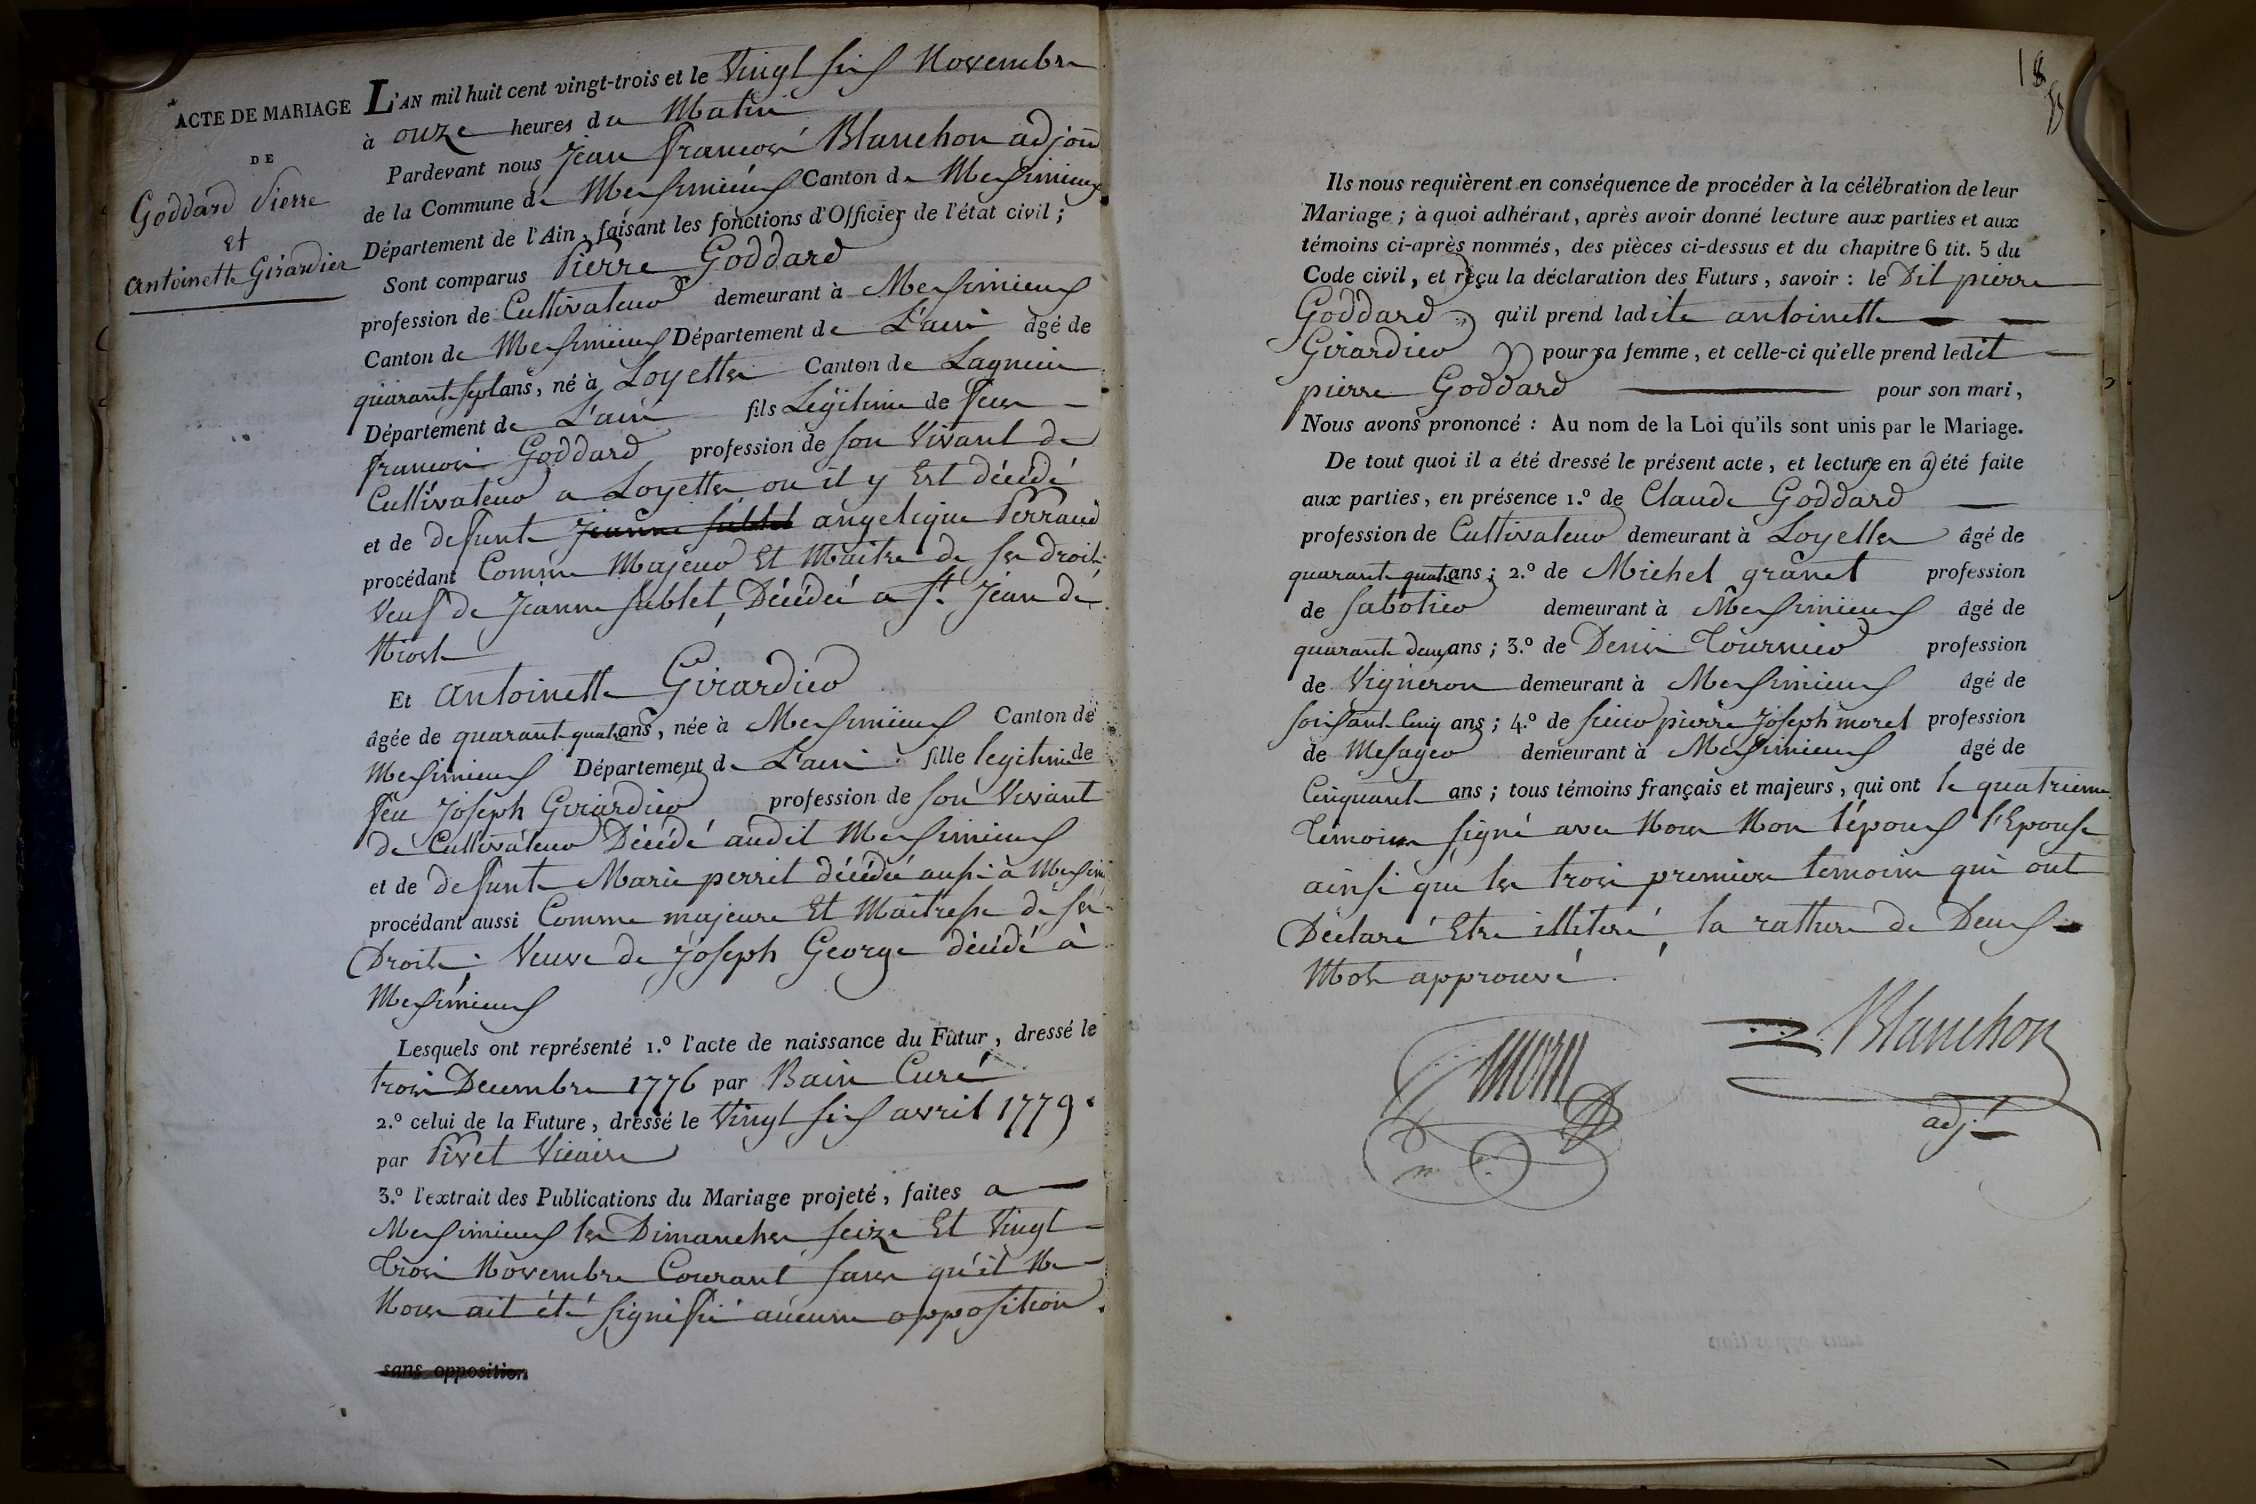 ACTE DE MARIAGE
DE
Goddard Pierre
et
antoinette Girardier
L'AN mil huit cent vingt-trois et le Vingt six Novembre
à onze heures du Matin
Pardevant nous Jean francois Blanchon adjoint
de la Commune de Messimieux Canton de Messimieux
Département de l'Ain, faisant les fonctions d'Officier de l'état civil ;
Sont comparus Pierre Goddard
profession de Cultivateur demeurant à Messimieux
Canton de Messimieux Département de L'ain âgé de
quarante sept ans, né à Loyettes Canton de Lagnieu
Département de L'ain fils Légitime de feu
francois Goddard profession de son Vivant de
Cultivateur a Loyettes ou il y Est décédé
et de defunte Jeanne Sublet angelique Perraud
procédant Comme Majeur Et Maitre de ses droits
Veuf de Jeanne Sublet, Décédée a St Jean de
Niost
Et antoinette Girardier
âgée de quarante quatre ans, née à Messimieux Canton de
Messimieux Département de L'ain fille legitime de
feu Joseph Girardier profession de son Vivant
de Cultivateur Décédé audit Messimieux
et de defunte Marie perret décédée aussi à Messimi
procédant aussi Comme majeure Et Maitresse de ses
Droits. Veuve de Joseph George décédé à
Messimieux
Lesquels ont représenté 1.º l'acte de naissance du Futur, dressé le
trois Decembre 1776 par Bain Curé
2.º celui de la Future, dressé le Vingt six avril 1779.
par Pivet Vicaire
3.º l'extrait des Publications du Mariage projeté, faites a
Messimieux les Dimanches seize Et Vingt
Trois Novembre Courant sans qu'il Ne
Nous ait été signifié aucune opposition.
sans opposition
18
Ils nous requièrent en conséquence de procéder à la célébration de leur
Mariage ; à quoi adhérant, après avoir donné lecture aux parties et aux
témoins ci-après nommés, des pièces ci-dessus et du chapitre 6 tit. 5 du
Code civil, et reçu la déclaration des Futurs, savoir : le Dit pierre
Goddard qu'il prend ladite antoinette
Girardier pour sa femme, et celle-ci qu'elle prend ledit
pierre Goddard pour son mari,
Nous avons prononcé : Au nom de la Loi qu'ils sont unis par le Mariage.
De tout quoi il a été dressé le présent acte, et lecture en a été faite
aux parties, en présence 1.º de Claude Goddard
profession de Cultivateur demeurant à Loyettes âgé de
quarante quatre ans ; 2.º de Michel granet profession
de Sabotier demeurant à Messimieux âgé de
quarante deux ans ; 3.º de Denis Tournier profession
de Vigneron demeurant à Messimieux âgé de
soisante Cinq ans ; 4.º de sieur pierre Joseph morel profession
de Mesager demeurant à Messimieux âgé de
Cinquante ans ; tous témoins français et majeurs, qui ont le quatrieme
Témoin signé avec Nous Non l'époux l'Epouse
ainsi que les trois premiers temoins qui ont
Déclaré Etre illiteré, la ratture de Deux
Mots approuvé.
Blanchon
adjt